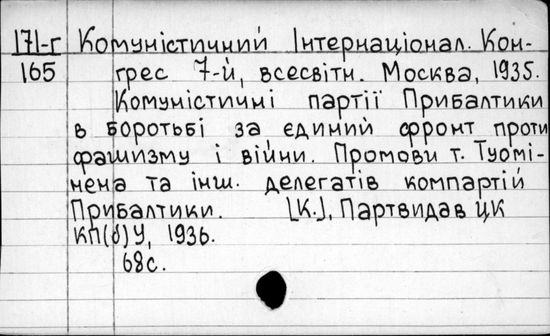 171-г Комуністичний Інтернаціонал. Кон-
165 грес 7-й, всесвітн. Москва, 1935.
Комуністичні партії Прибалтики
в боротьбі за єдиний фронт проти
фашизму і війни. Промови т. Туомі-
нена та інш. делегатів компартій
Прибалтики. [К.], Партвидав ЦК
КП(б)У, 1936.
68с.